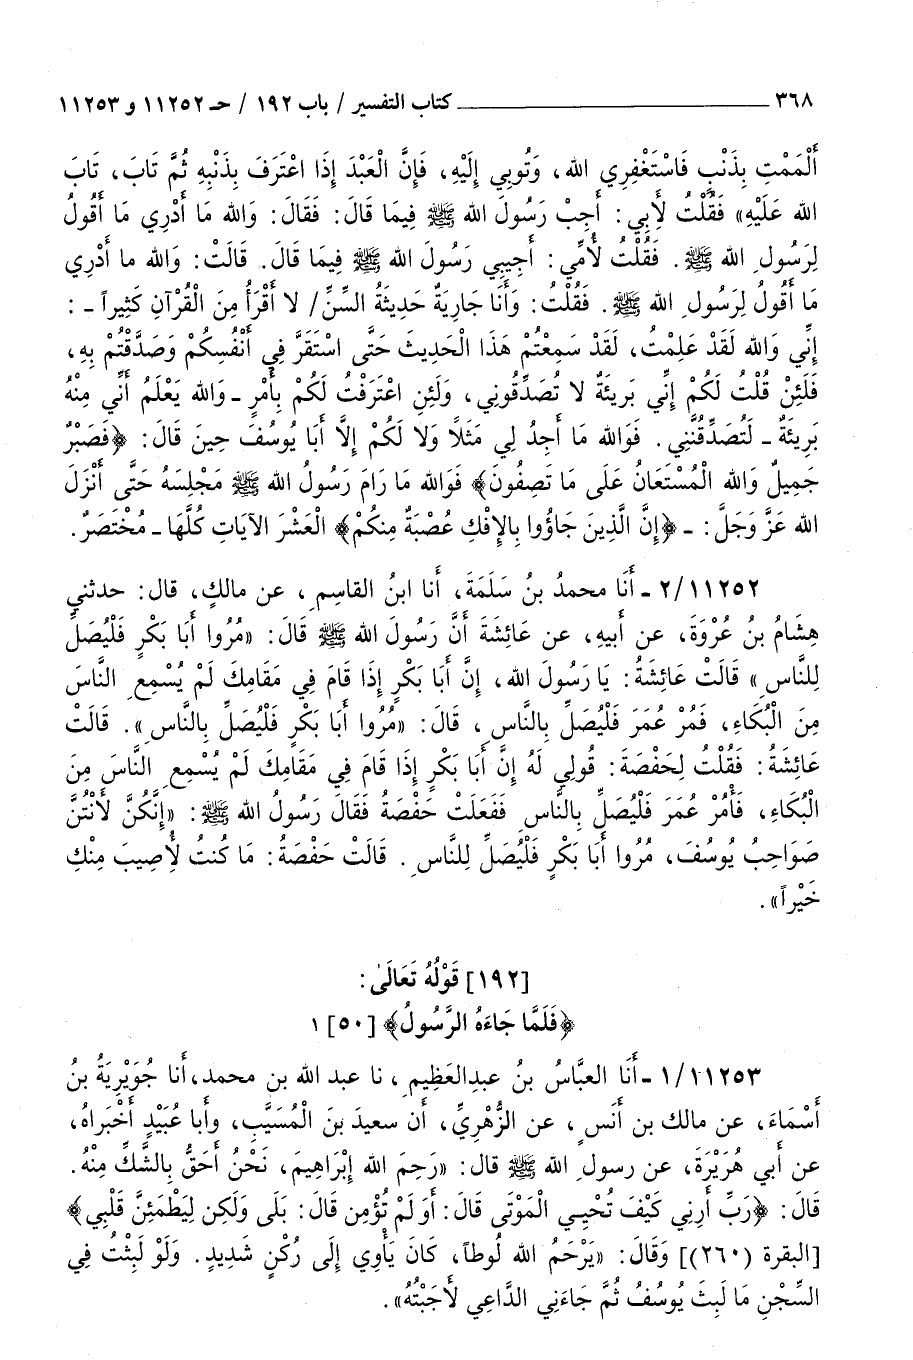 ٣٦٨ ــــــــــــــــــــ كتاب التفسير / باب ١٩٢ / حـ ١١٢٥٢ و ١١٢٥٣
أَلْمَمْتِ بِذَنْبٍ فَاسْتَغْفِرِي الله، وَتُوبِي إِلَيْهِ، فَإِنَّ الْعَبْدَ إِذَا اعْتَرَفَ بِذَنْبِهِ ثُمَّ تَابَ، تَابَ
الله عَلَيْهِ» فَقُلْتُ لِأَبِي: أَجِبْ رَسُولَ الله ﷺ فِيمَا قَالَ: فَقَالَ: وَالله مَا أَدْرِي مَا أَقُولُ
لِرَسُولِ الله ﷺ. فَقُلْتُ لأُمِّي: أَجِيبِي رَسُولَ الله ﷺ فِيمَا قَالَ. قَالَتْ: وَالله ما أَدْرِي
مَا أَقُولُ لِرَسُولِ الله ﷺ. فَقُلْتُ: وَأَنَا جَارِيَةٌ حَدِيثَةُ السِّنِّ/ لا أَقْرَأُ مِنَ الْقُرْآنِ كَثِيراً ـ :
إِنِّي وَالله لَقَدْ عَلِمْتُ، لَقَدْ سَمِعْتُمْ هَذَا الْحَدِيثَ حَتَّى اسْتَقَرَّ فِي أَنْفُسِكُمْ وَصَدَّقْتُمْ بِهِ،
فَلَئِنْ قُلْتُ لَكُمْ إِنِّي بَرِيئَةٌ لا تُصَدِّقُونِي، وَلَئِنِ اعْتَرَفْتُ لَكُمْ بِأَمْرٍ ـ وَالله يَعْلَمُ أَنِّي مِنْهُ
بَرِيئَةٌ ـ لَتُصَدِّقُنَّنِي. فَوَالله مَا أَجِدُ لِي مَثَلاً وَلا لَكُمْ إِلاَّ أَبَا يُوسُفَ حِينَ قَالَ: ﴿فَصَبْرٌ
جَمِيلٌ وَالله الْمُسْتَعَانُ عَلَى مَا تَصِفُونَ﴾ فَوَالله مَا رَامَ رَسُولُ الله ﷺ مَجْلِسَهُ حَتَّى أَنْزَلَ
الله عَزَّ وَجَلَّ: ـ ﴿إِنَّ الَّذِينَ جَاؤُوا بِالإِفْكِ عُصْبَةٌ مِنكُمْ﴾ الْعَشْرَ الآيَاتِ كُلَّهَا ـ مُخْتَصَرٌ.
١١٢٥٢/٢ ـ أَنَا محمدُ بنُ سَلَمَةَ، أنا ابنُ القاسِمِ، عن مالكٍ، قال: حدثني
هِشَامُ بنُ عُرْوَةَ، عن أبيهِ، عن عَائِشَةَ أَنَّ رَسُولَ الله ﷺ قَالَ: «مُرُوا أَبَا بَكْرٍ فَلْيُصَلِّ
لِلنَّاسِ» قَالَتْ عَائِشَةُ: يَا رَسُولَ الله، إِنَّ أَبَا بَكْرٍ إِذَا قَامَ فِي مَقَامِكَ لَمْ يُسْمِعِ النَّاسَ
مِنَ الْبُكَاءِ، فَمُرْ عُمَرَ فَلْيُصَلِّ بِالنَّاسِ، قَالَ: «مُرُوا أَبَا بَكْرٍ فَلْيُصَلِّ بِالنَّاسِ». قَالَتْ
عَائِشَةُ: فَقُلْتُ لِحَفْصَةَ: قُولِي لَهُ إِنَّ أَبَا بَكْرٍ إِذَا قامَ فِي مَقَامِكَ لَمْ يُسْمِعِ النَّاسَ مِنَ
الْبُكَاءِ، فَأْمُرْ عُمَرَ فَلْيُصَلِّ بِالنَّاسِ فَفَعَلَتْ حَفْصَةُ فَقَالَ رَسُولُ الله ﷺ: «إِنَّكُنَّ لأَنْتُنَّ
صَوَاحِبُ يُوسُفَ، مُرُوا أَبَا بَكْرٍ فَلْيُصَلِّ لِلنَّاسِ. قَالَتْ حَفْصَةُ: مَا كُنتُ لأُصِيبَ مِنْكِ
خَيْراً».
[١٩٢] قَوْلُهُ تَعَالَىٰ:
﴿فَلَمَّا جَاءَهُ الرَّسُولُ﴾ [٥٠] ١
١١٢٥٣/١ ـ أَنَا العبَّاسُ بنُ عبدالعَظِيمِ، نا عبد الله بن محمد، أنا جُوَيْرِيَةُ بنُ
أَسْمَاءَ، عن مالك بن أَنَسٍ، عن الزُّهْرِيِّ، أن سعيدَ بنَ الْمُسَيَّبِ، وأبا عُبَيْدٍ أَخْبَرَاهُ،
عن أَبي هُرَيْرَةَ، عن رسولِ الله ﷺ قال: «رَحِمَ الله إِبْرَاهِيمَ، نَحْنُ أَحَقُّ بِالشَّكِّ مِنْهُ.
قَالَ: ﴿رَبِّ أَرِنِي كَيْفَ تُحْيِي الْمَوْتَى قَالَ: أَوَ لَمْ تُؤْمِن قَالَ: بَلَى وَلَكِن لِيَطْمَئِنَّ قَلْبِي﴾
[البقرة (٢٦٠)] وَقَالَ: «يَرْحَمُ الله لُوطاً، كَانَ يَأْوِي إِلَى رُكْنٍ شَدِيدٍ. وَلَوْ لَبِثْتُ فِي
السِّجْنِ مَا لَبِثَ يُوسُفُ ثُمَّ جَاءَنِي الدَّاعِي لأَجَبْتُهُ».